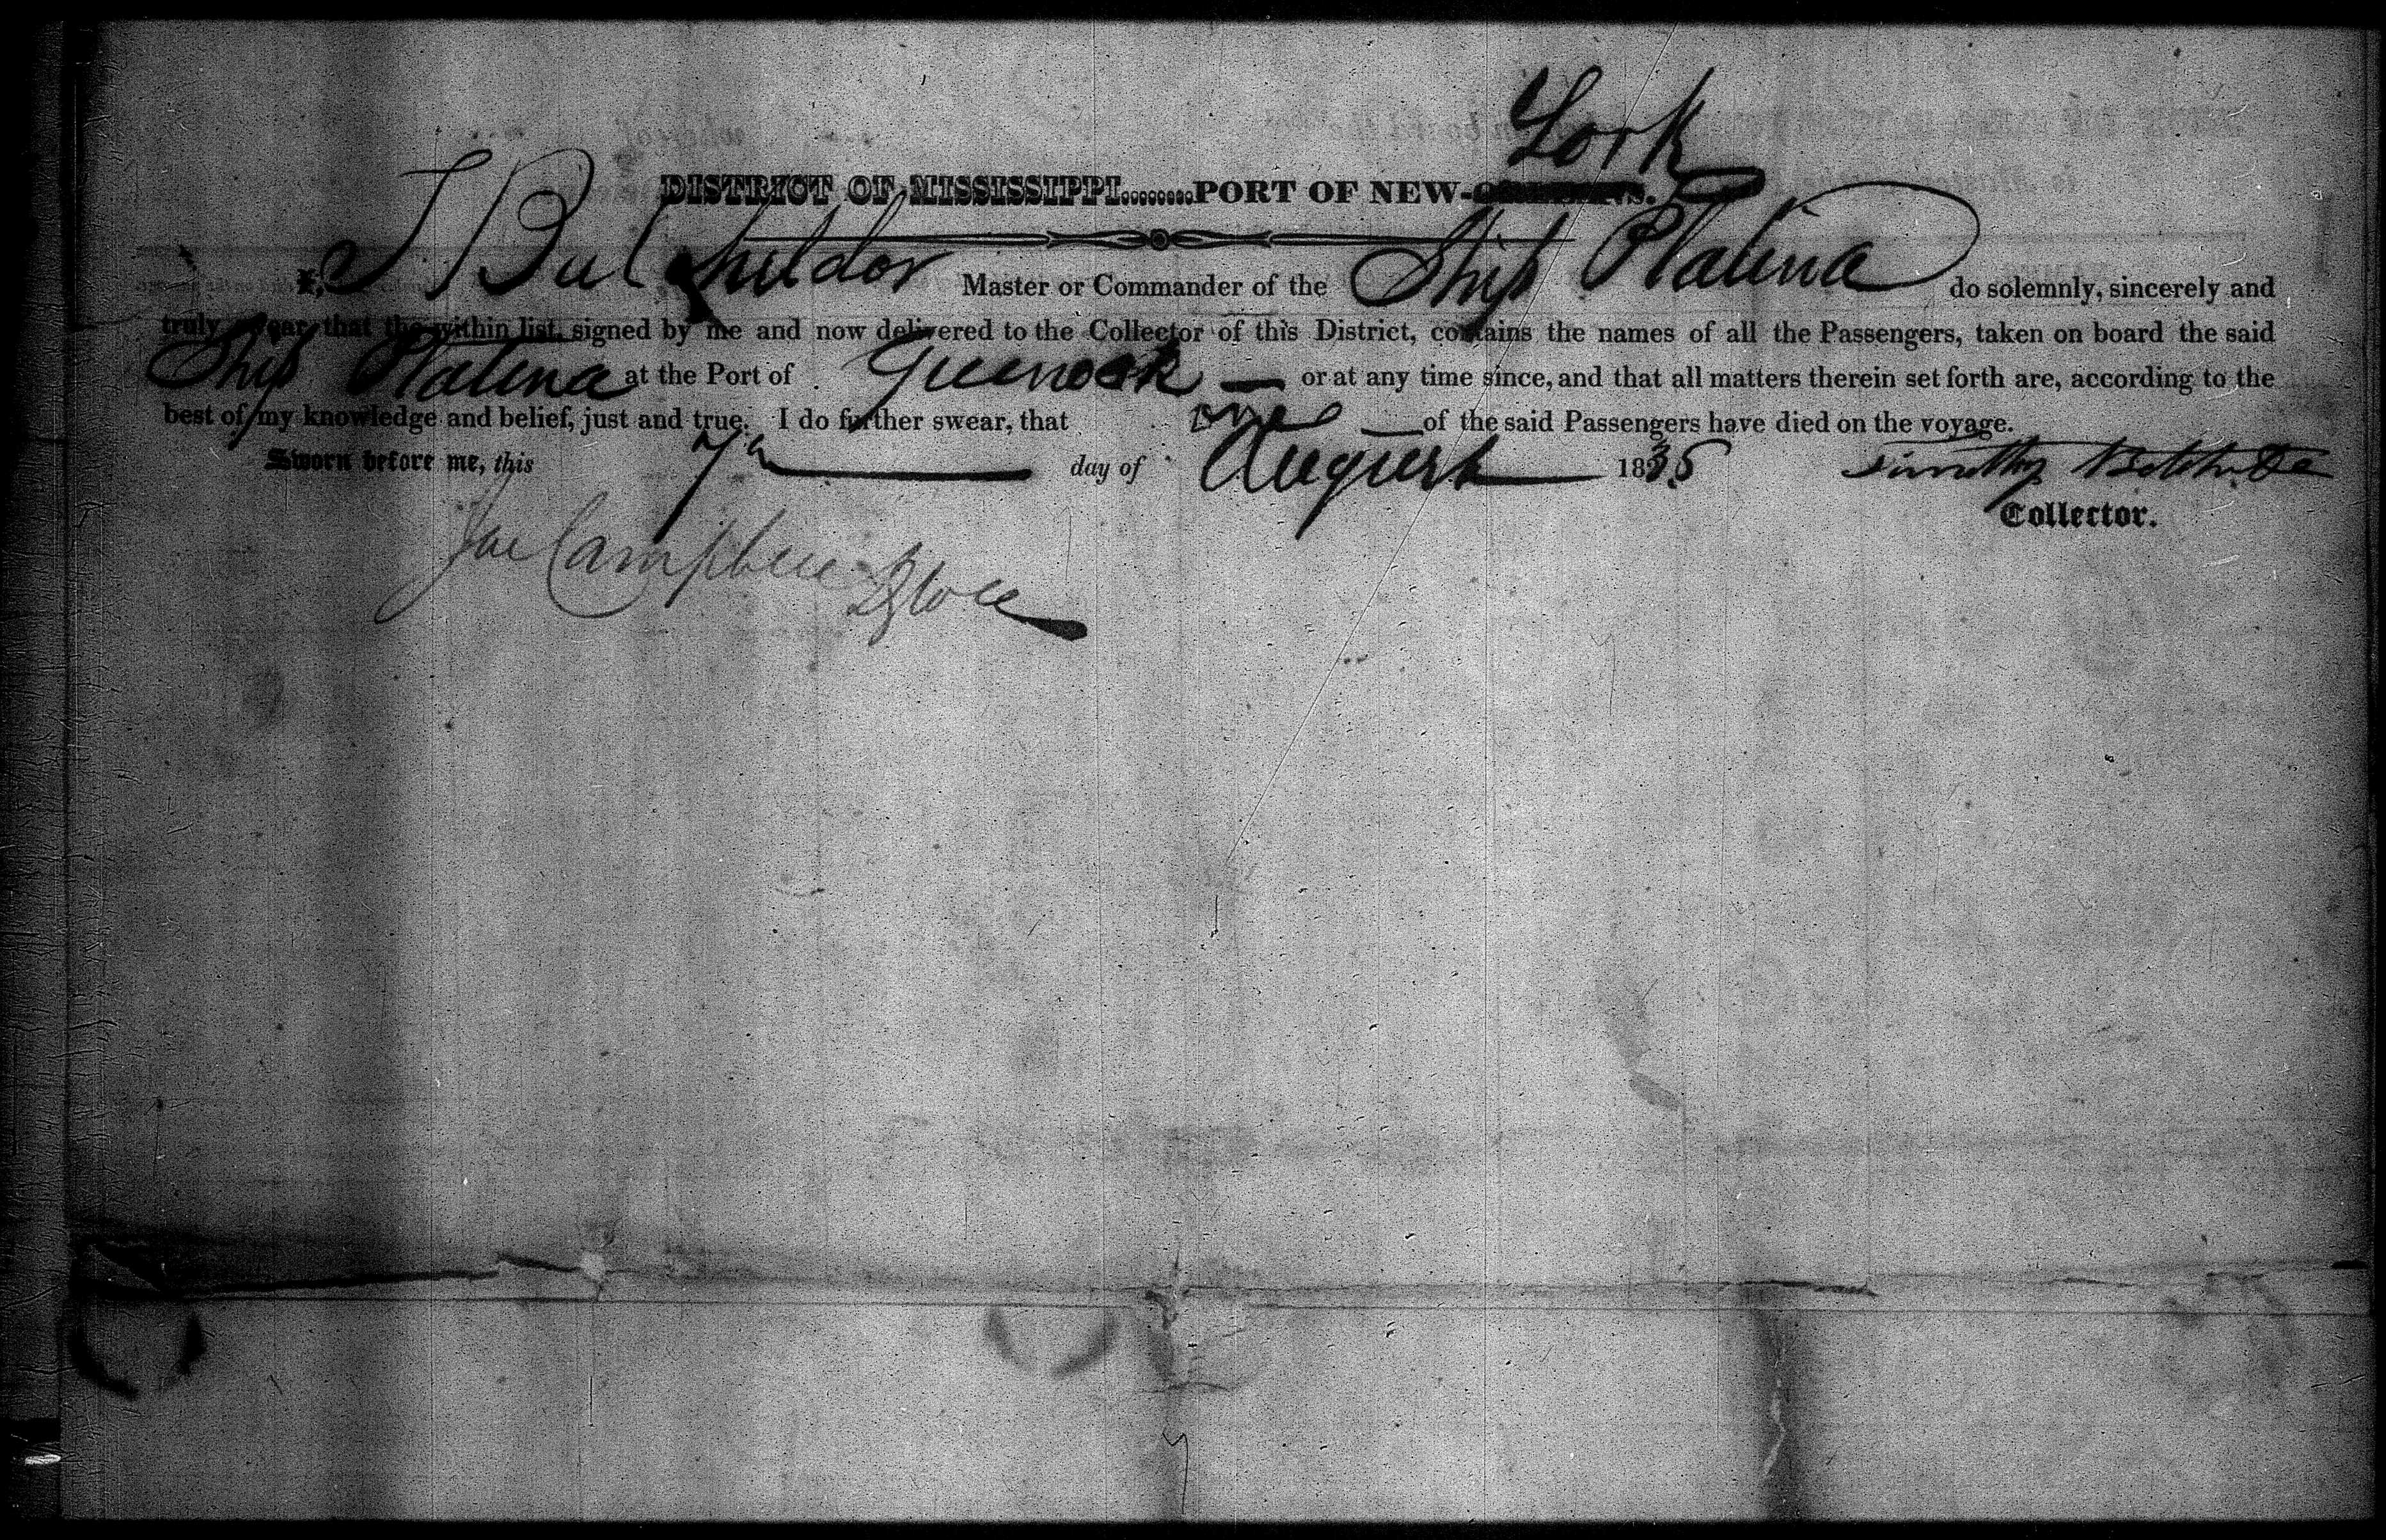 York
DISTRICT OF MISSISSIPPI........PORT OF NEW-ORLEANS.
I, T Batcheldor Master or Commander of the Ship Platina do solemnly, sincerely and
truly swear, that the within list, signed by me and now delivered to the Collector of this District, contains the names of all the Passengers, taken on board the said
Ship Platina at the Port of Greenock — or at any time since, and that all matters therein set forth are, according to the
best of my knowledge and belief, just and true. I do further swear, that one of the said Passengers have died on the voyage.
Sworn before me, this 7th day of August 1835 Timothy
Collector.
Campbell